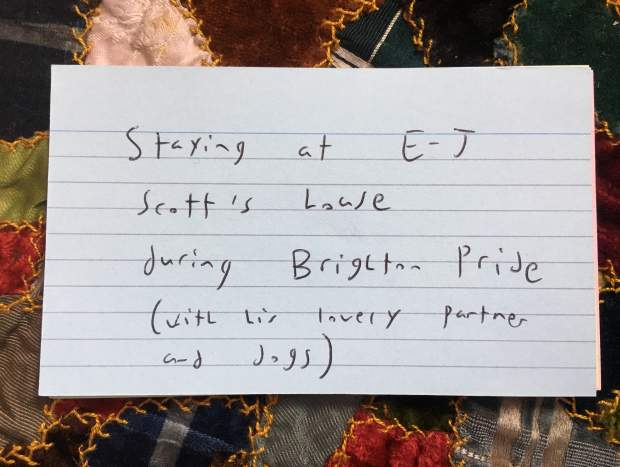 Staying at E-J
Scott's house
during Brighton Pride
(with his lovely partner
and dogs)